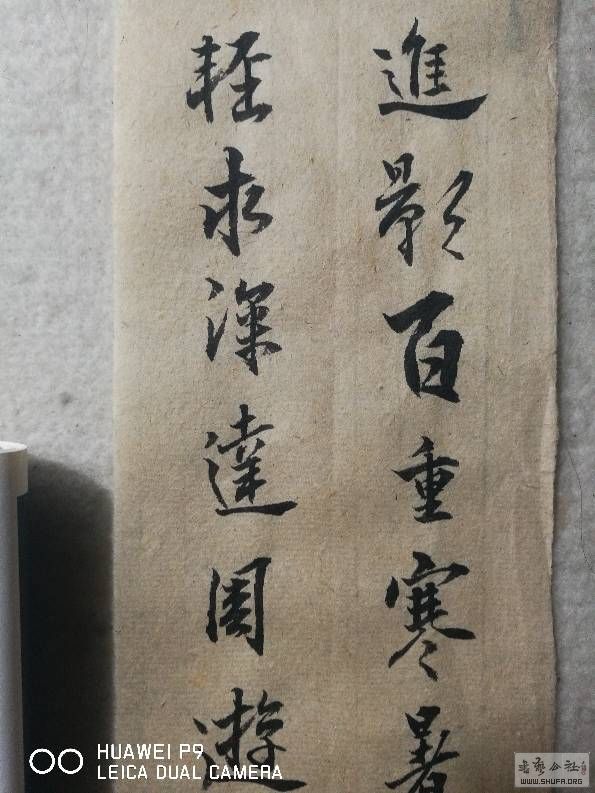 進影百重寒暑
輕求深達周遊
HUAWEI P9
LEICA DUAL CAMERA
WWW.SHUFA.ORG